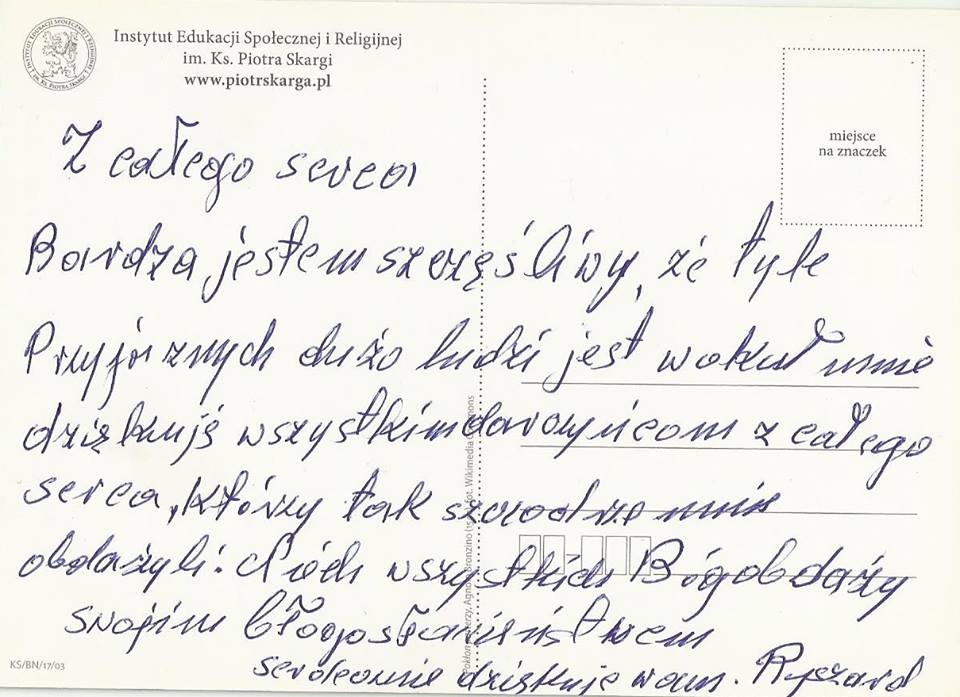 Instytut Edukacji Społecznej i Religijnej
im. Ks. Piotra Skargi
www.piotrskarga.pl
miejsce
na znaczek
Z całego serca
Bardza jestem szczęśliwy, że tyle
Przyjóznych dużo ludzi jest wokuł mnie
dziękuję wszystkim darczyńcom z całego
serca, którzy tak szczodrze mnie
obdażyli. Niech wszystkich Bóg obdaży
swojim błogosławieństwem
serdecznie dziękuje wam. Ryszard
KS/BN/17/03
Agnolo Bronzino fot. Wikimedia Commons